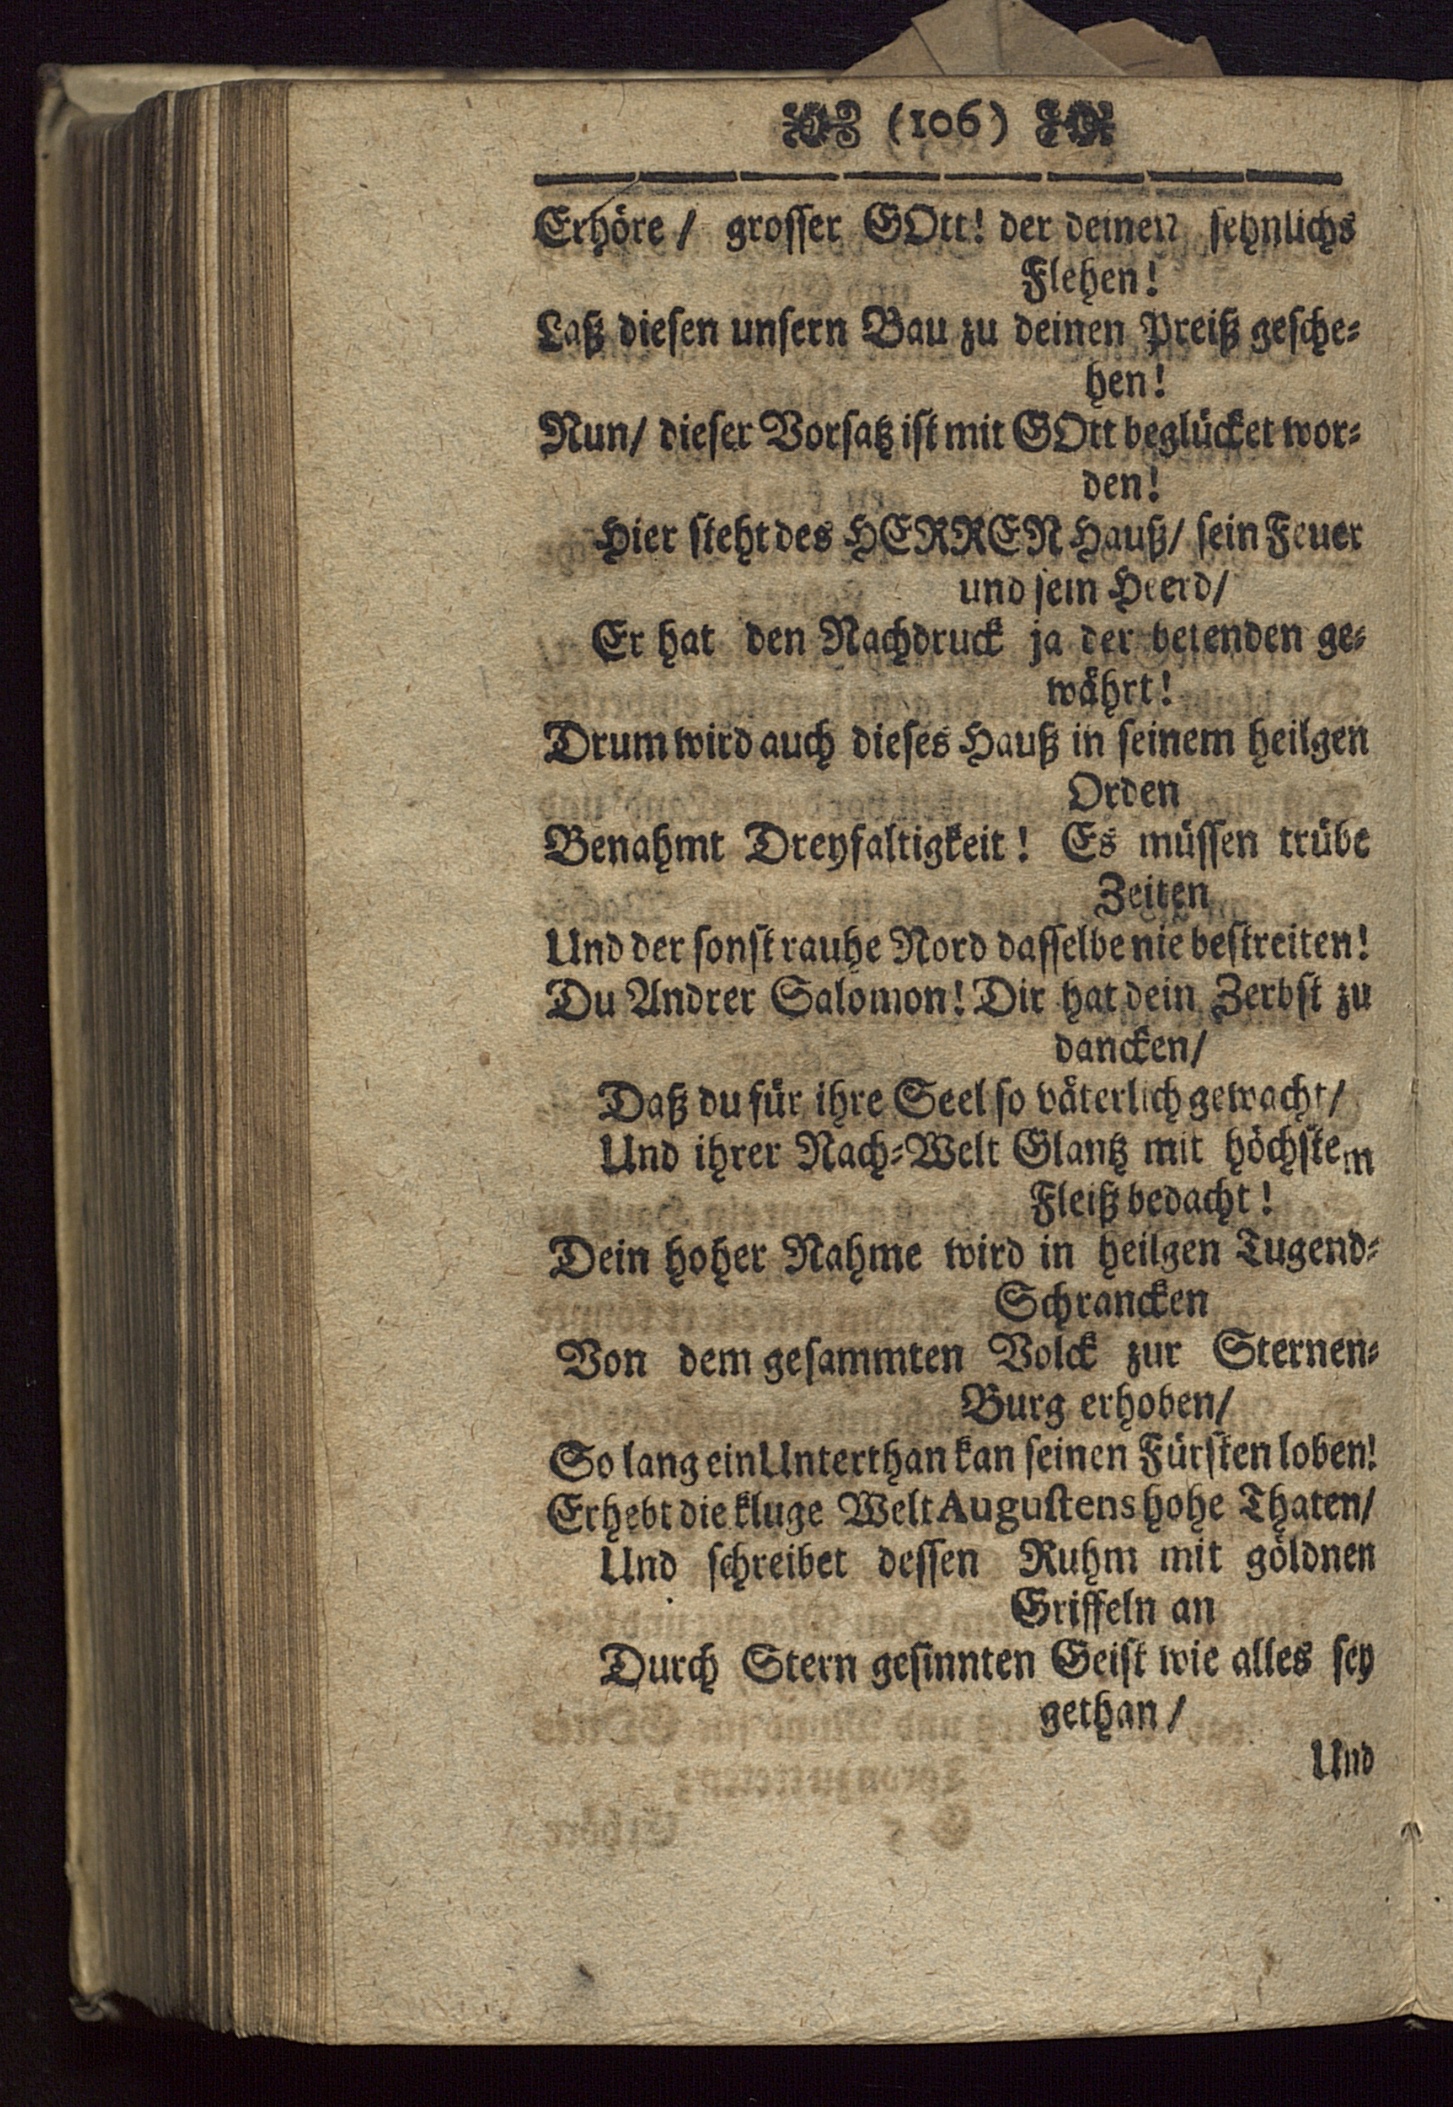 (106)
Erhöre / grosser GOtt! der deinen sehnlichs
Flehen!
Laß diesen unsern Bau zu deinen Preiß gesche-
hen!
Nun/ dieser Vorsatz ist mit GOtt beglücket wor-
den!
Hier steht des HERREN Hauß/ sein Feuer
und sein Heerd/
Er hat den Nachdruck ja der betenden ge-
währt!
Drum wird auch dieses Hauß in seinem heilgen
Orden
Benahmt Dreyfaltigkeit! Es müssen trübe
Zeiten
Und der sonst rauhe Nord dasselbe nie bestreiten!
Du Andrer Salomon! Dir hat dein Zerbst zu
dancken/
Daß du für ihre Seel so väterlich gewacht/
Und ihrer Nach-Welt Glantz mit höchstem
Fleiß bedacht!
Dein hoher Nahme wird in heilgen Tugend-
Schrancken
Von dem gesammten Volck zur Sternen-
Burg erhoben/
So lang ein Unterthan kan seinen Fürsten loben!
Erhebt die kluge Welt Augustens hohe Thaten/
Und schreibet dessen Ruhm mit göldnen
Griffeln an
Durch Stern gesinnten Geist wie alles sey
gethan /
Und